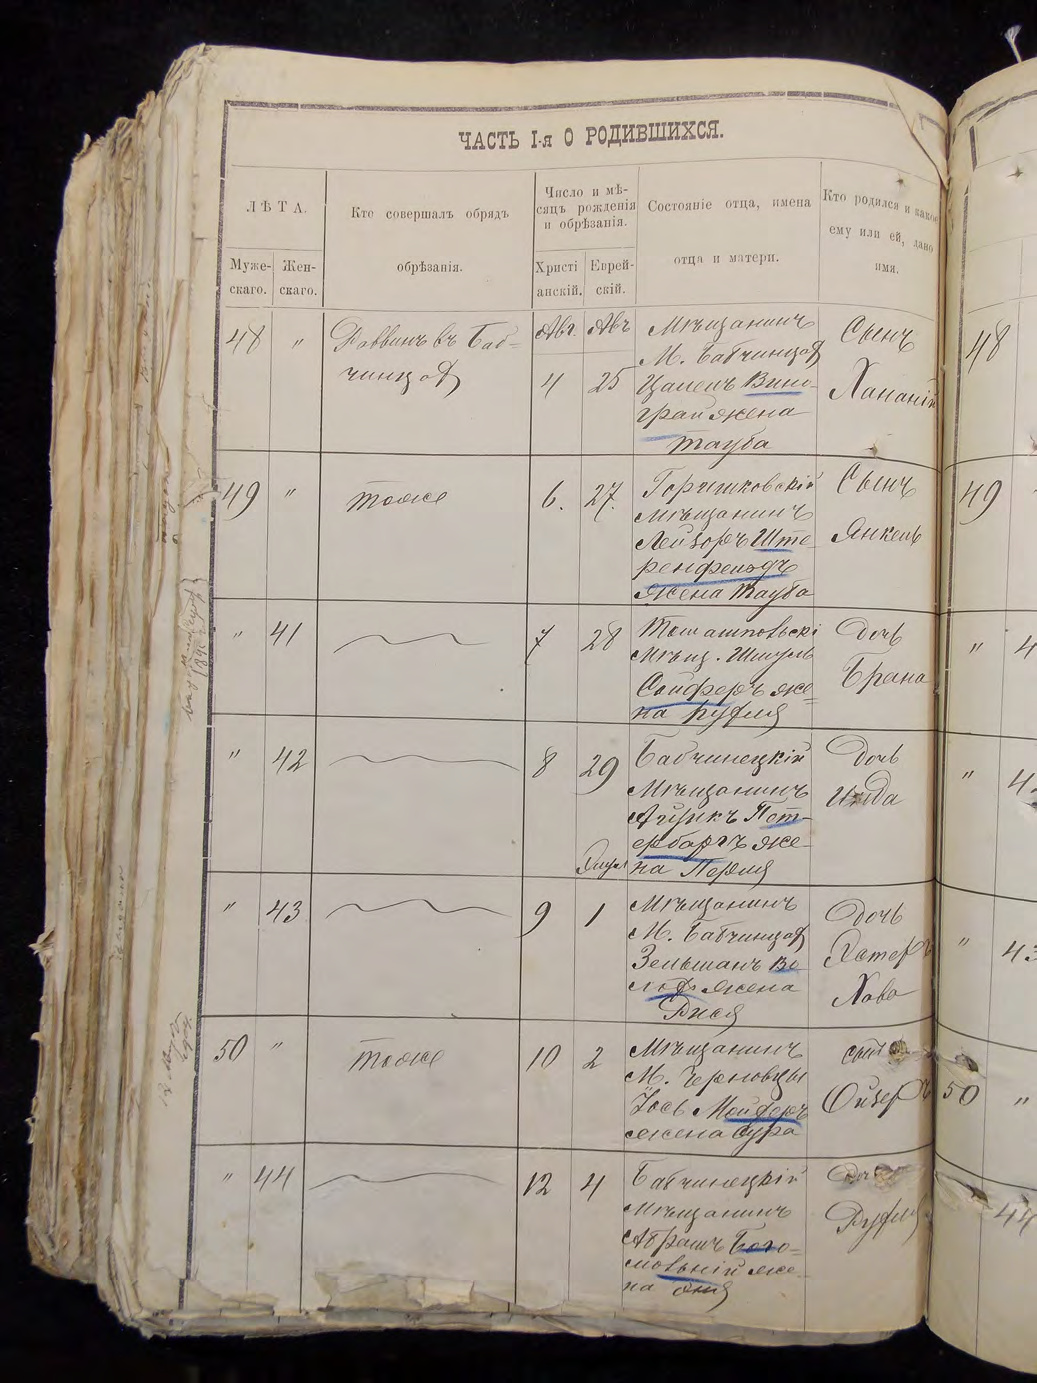 ЧАСТЬ I-я О РОДИВШИХСЯ.
ЛѢТА.
Муже-
скаго.
Жен-
скаго.
Кто совершалъ обрядъ
обрѣзанія.
Число и мѣ-
сяцъ рожденія
и обрѣзанія.
Христі
анскій.
Еврей-
скій.
Состояніе отца, имена
отца и матери.
Кто родился и какое
ему или ей, дано
имя.
48 "
Раввинъ въ Баб-
чинцахъ
Авг.
4
Авъ
25
Мѣщанинъ
М. Бабчинцахъ
Вино-
град жена
Тауба
Сынъ
Хананій
48
49 "
тоже
6.
27.
Горышковскій
мѣщанинъ
Лейзоръ Ште-
ренфельдъ
жена Тауба
Сынъ
Янкель
49
" 41
7
28
Томашпольскі
мѣщ. Шмуль
Сойферъ же-
на Рухля
Дочь
Брана
"
" 42
8
29
Бабчинецкій
Мѣщанинъ
Айзикъ Пет-
ербаргъ же-
на Перля
Дочь
"
Элулъ
" 43
9
1
Мѣщанинъ
М. Бабчинцахъ
Зельманъ Во-
лох жена
Рися
Дочь
Эстеръ
Хава
"
50 "
тоже
10
2
Мѣщанинъ
М. Черновцы
Іось Мойферъ
жена Сура
Ойзеръ
50 "
" 44
12
4
Бабчинецкій
мѣщанинъ
Абрамъ Бого-
мольній же-
на
Дочь
Рухля
44